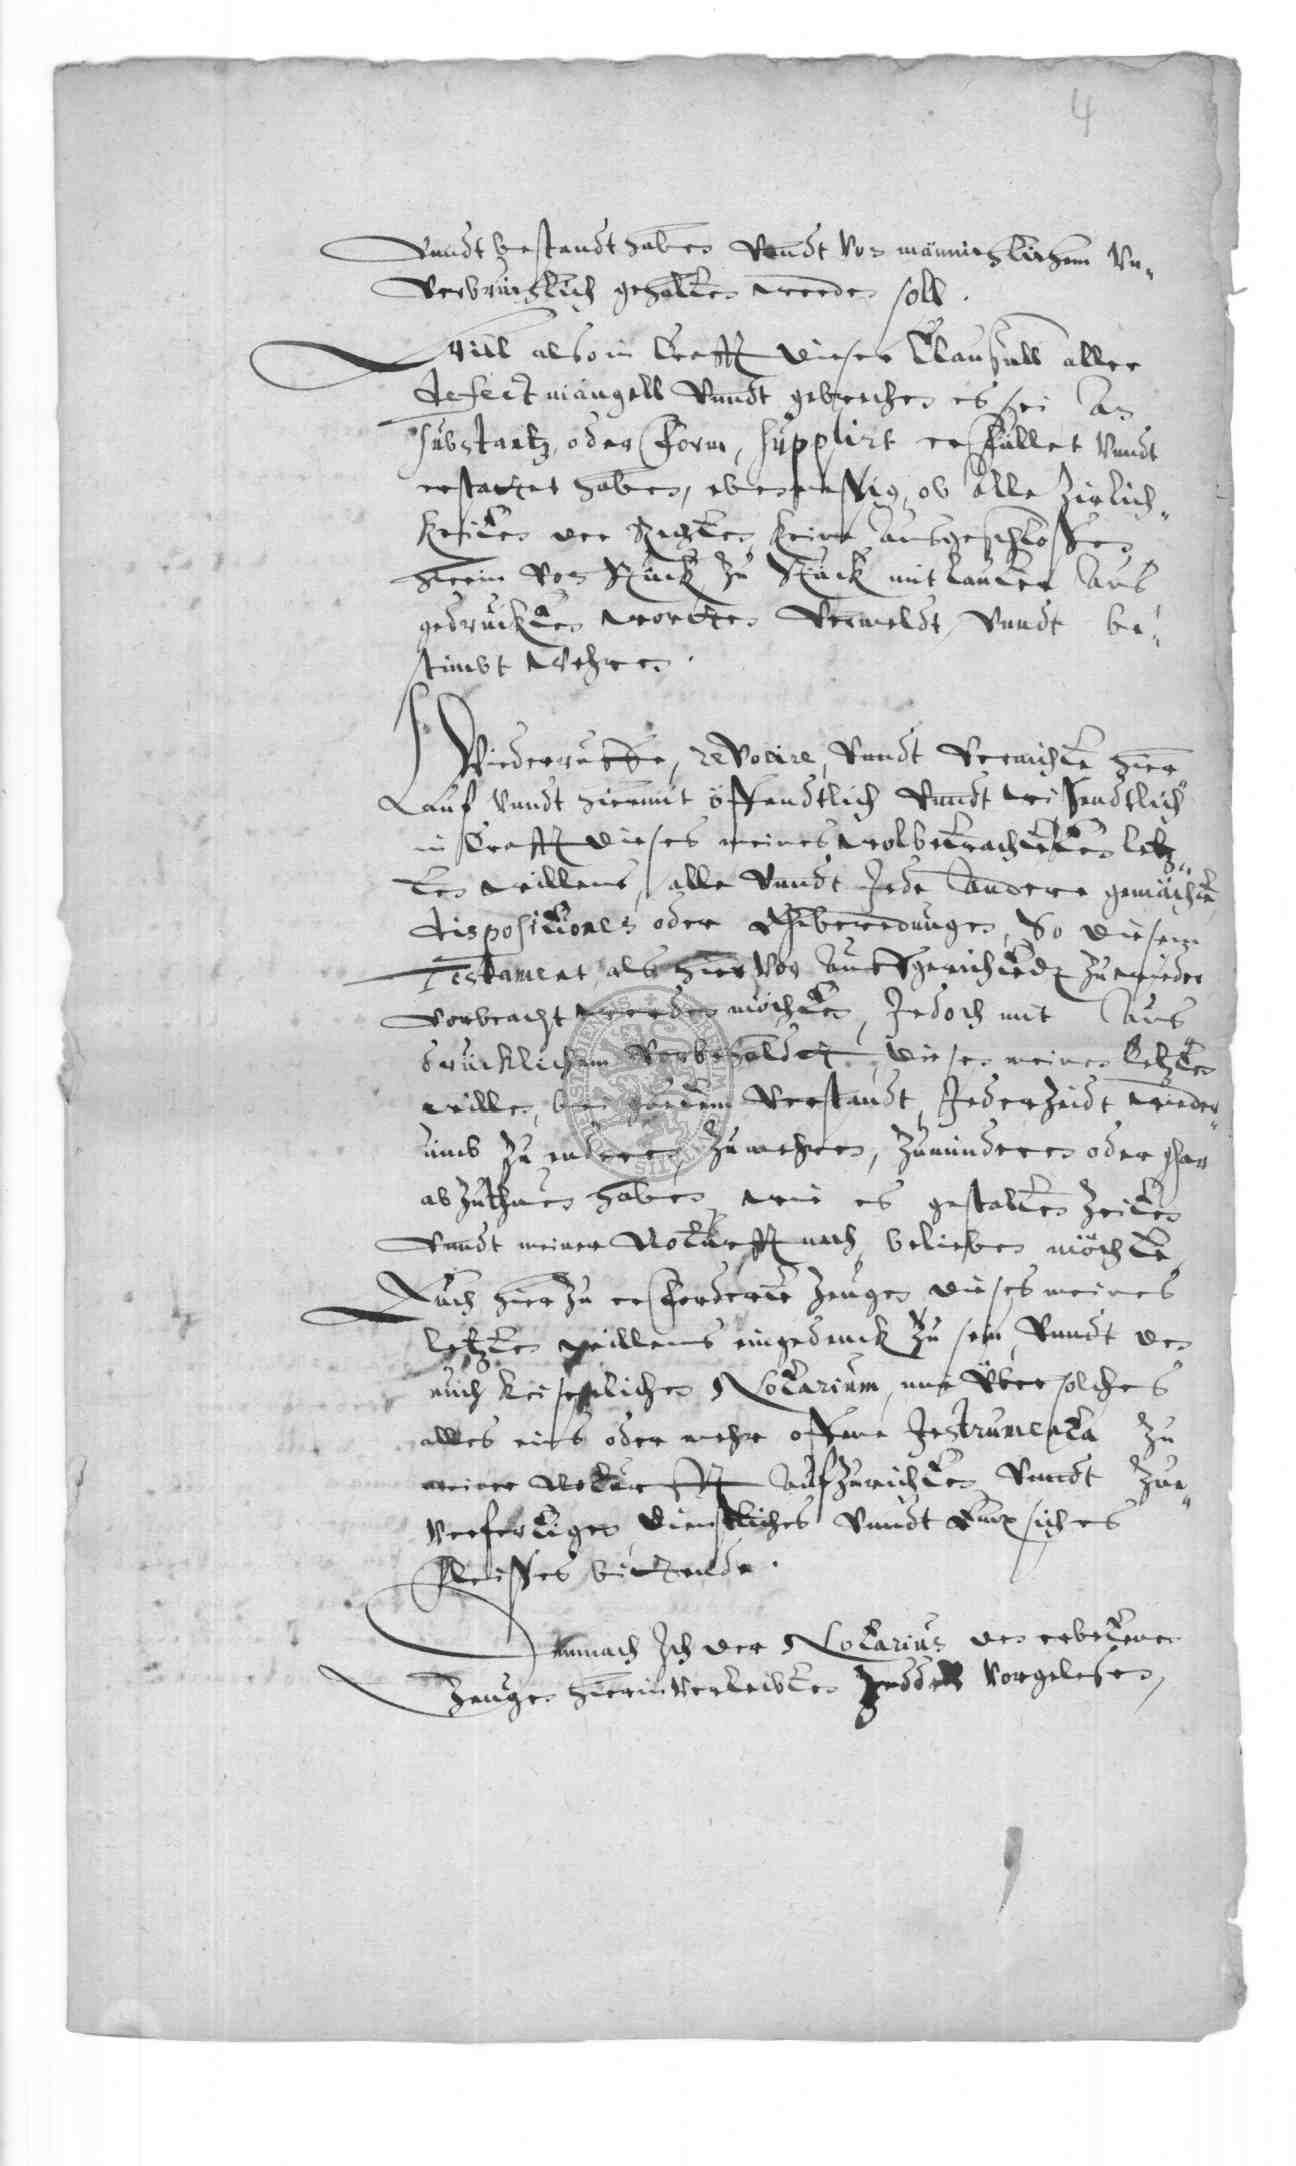 4
Vnndt bestandt haben Vnndt Von männichlichem Vn„
Verbrüchlich gehalten werden soll.
Will also in Crafft dieser Clausull aller
defect mängell Vnndt gebrechen es sei An
Substantz, oder Form, supplirt erfüllet Vnndt
erstattet haben, ebenmessig, ob alle Zirlich„
keiten der Rechten, keine Ausgeschlossen
hierin Von Stück zu Stück mit lauter Aus
gedruckten wortten Vermeldt Vnndt be„
stimbt wehren.
Wiederruffe, reVocire, Vnndt Vernichte hier
Lauf Vnndt hiermit öffendtlich Vnndt wissendtlich
in Crafft dieses meines wolbetrachteten letz„
ten willens, alle Vnndt Jede Andere gemächte
dispositiones oder Vberedungen, So diesem
Testament, als hierVor Auffgerichtedt zuwieder
Vorbracht werden möchten, Jedoch mit Aus
drücklichem Vorbehaldt, diesen meinen letzten
willen, bei gutem Verstandt, Jederzeidt wieder„
umb zu endern, zumehren, zumindern oder ghar
abzuthuen haben, wie es gestalten Zeiten
Vnndt meiner Notturfft nach, belieben möchte,
Auch hierzu erforderte Zeugen dieses meines
letzten willens eingedenck zu sein, Vnndt den
auch keiserlichen Notarium, mir Vber solches
alles eins oder mehr offene Instrumenta zu
meiner Notturfft Aufzurichten Vnndt zu„
Verfertigen dienstliches Vnndt Embsiches
fleisses bittende.
Demnach Ich der Notarius den erbetenen
Zeugen hierinverleibten Zeddel Vorgelesen,